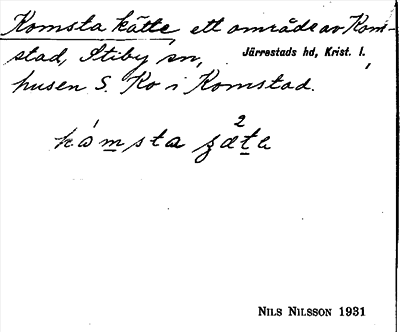 Komsta kätte, ett område av Kom-
stad, Stiby sn, Järrestads hd, Krist. l.
husen S. Ko i Komstad.
NILS NILSSON 1931